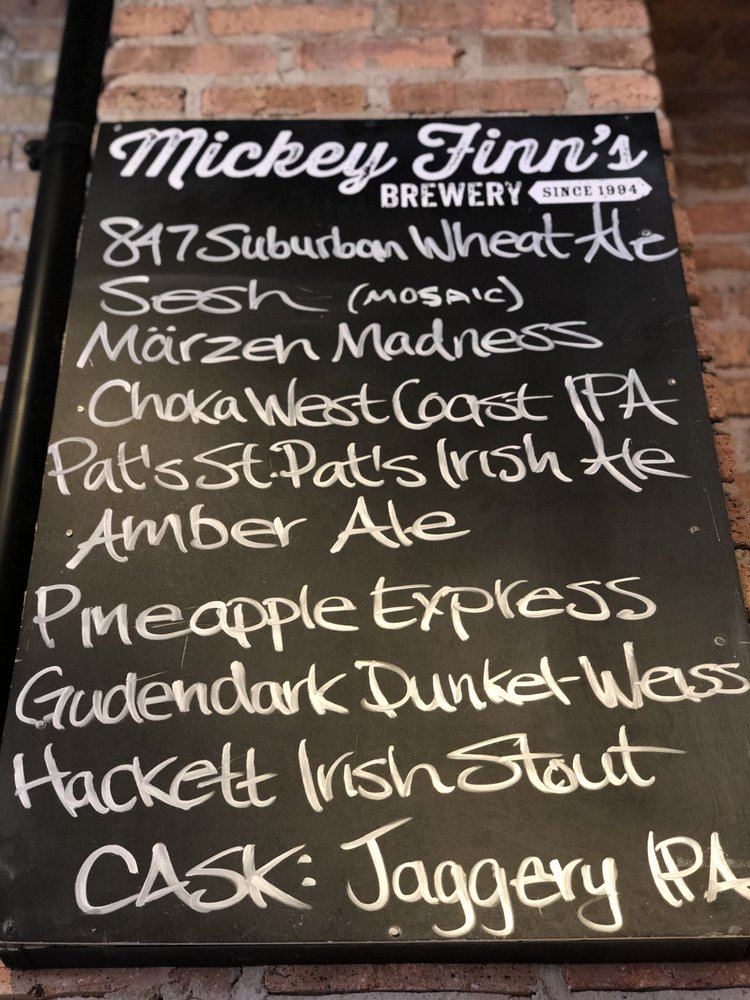 Mickey Finn's
BREWERY SINCE 1994
847 Suburban Wheat Ale
Sesh (MOSAIC)
Märzen Madness
Choka West Coast IPA
Pat's St. Pat's Irish Ale
Amber Ale
Pineapple Express
Gudendark Dunkel-Weiss
Hackett Irish Stout
CASK: Jaggery IPA